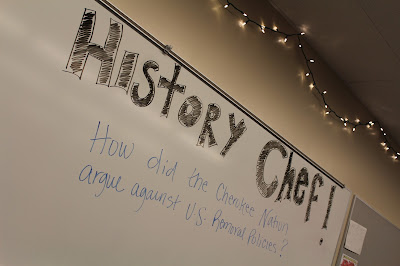 History Chef!
How did the Cherokee Nation
argue against U.S. Removal Policies?